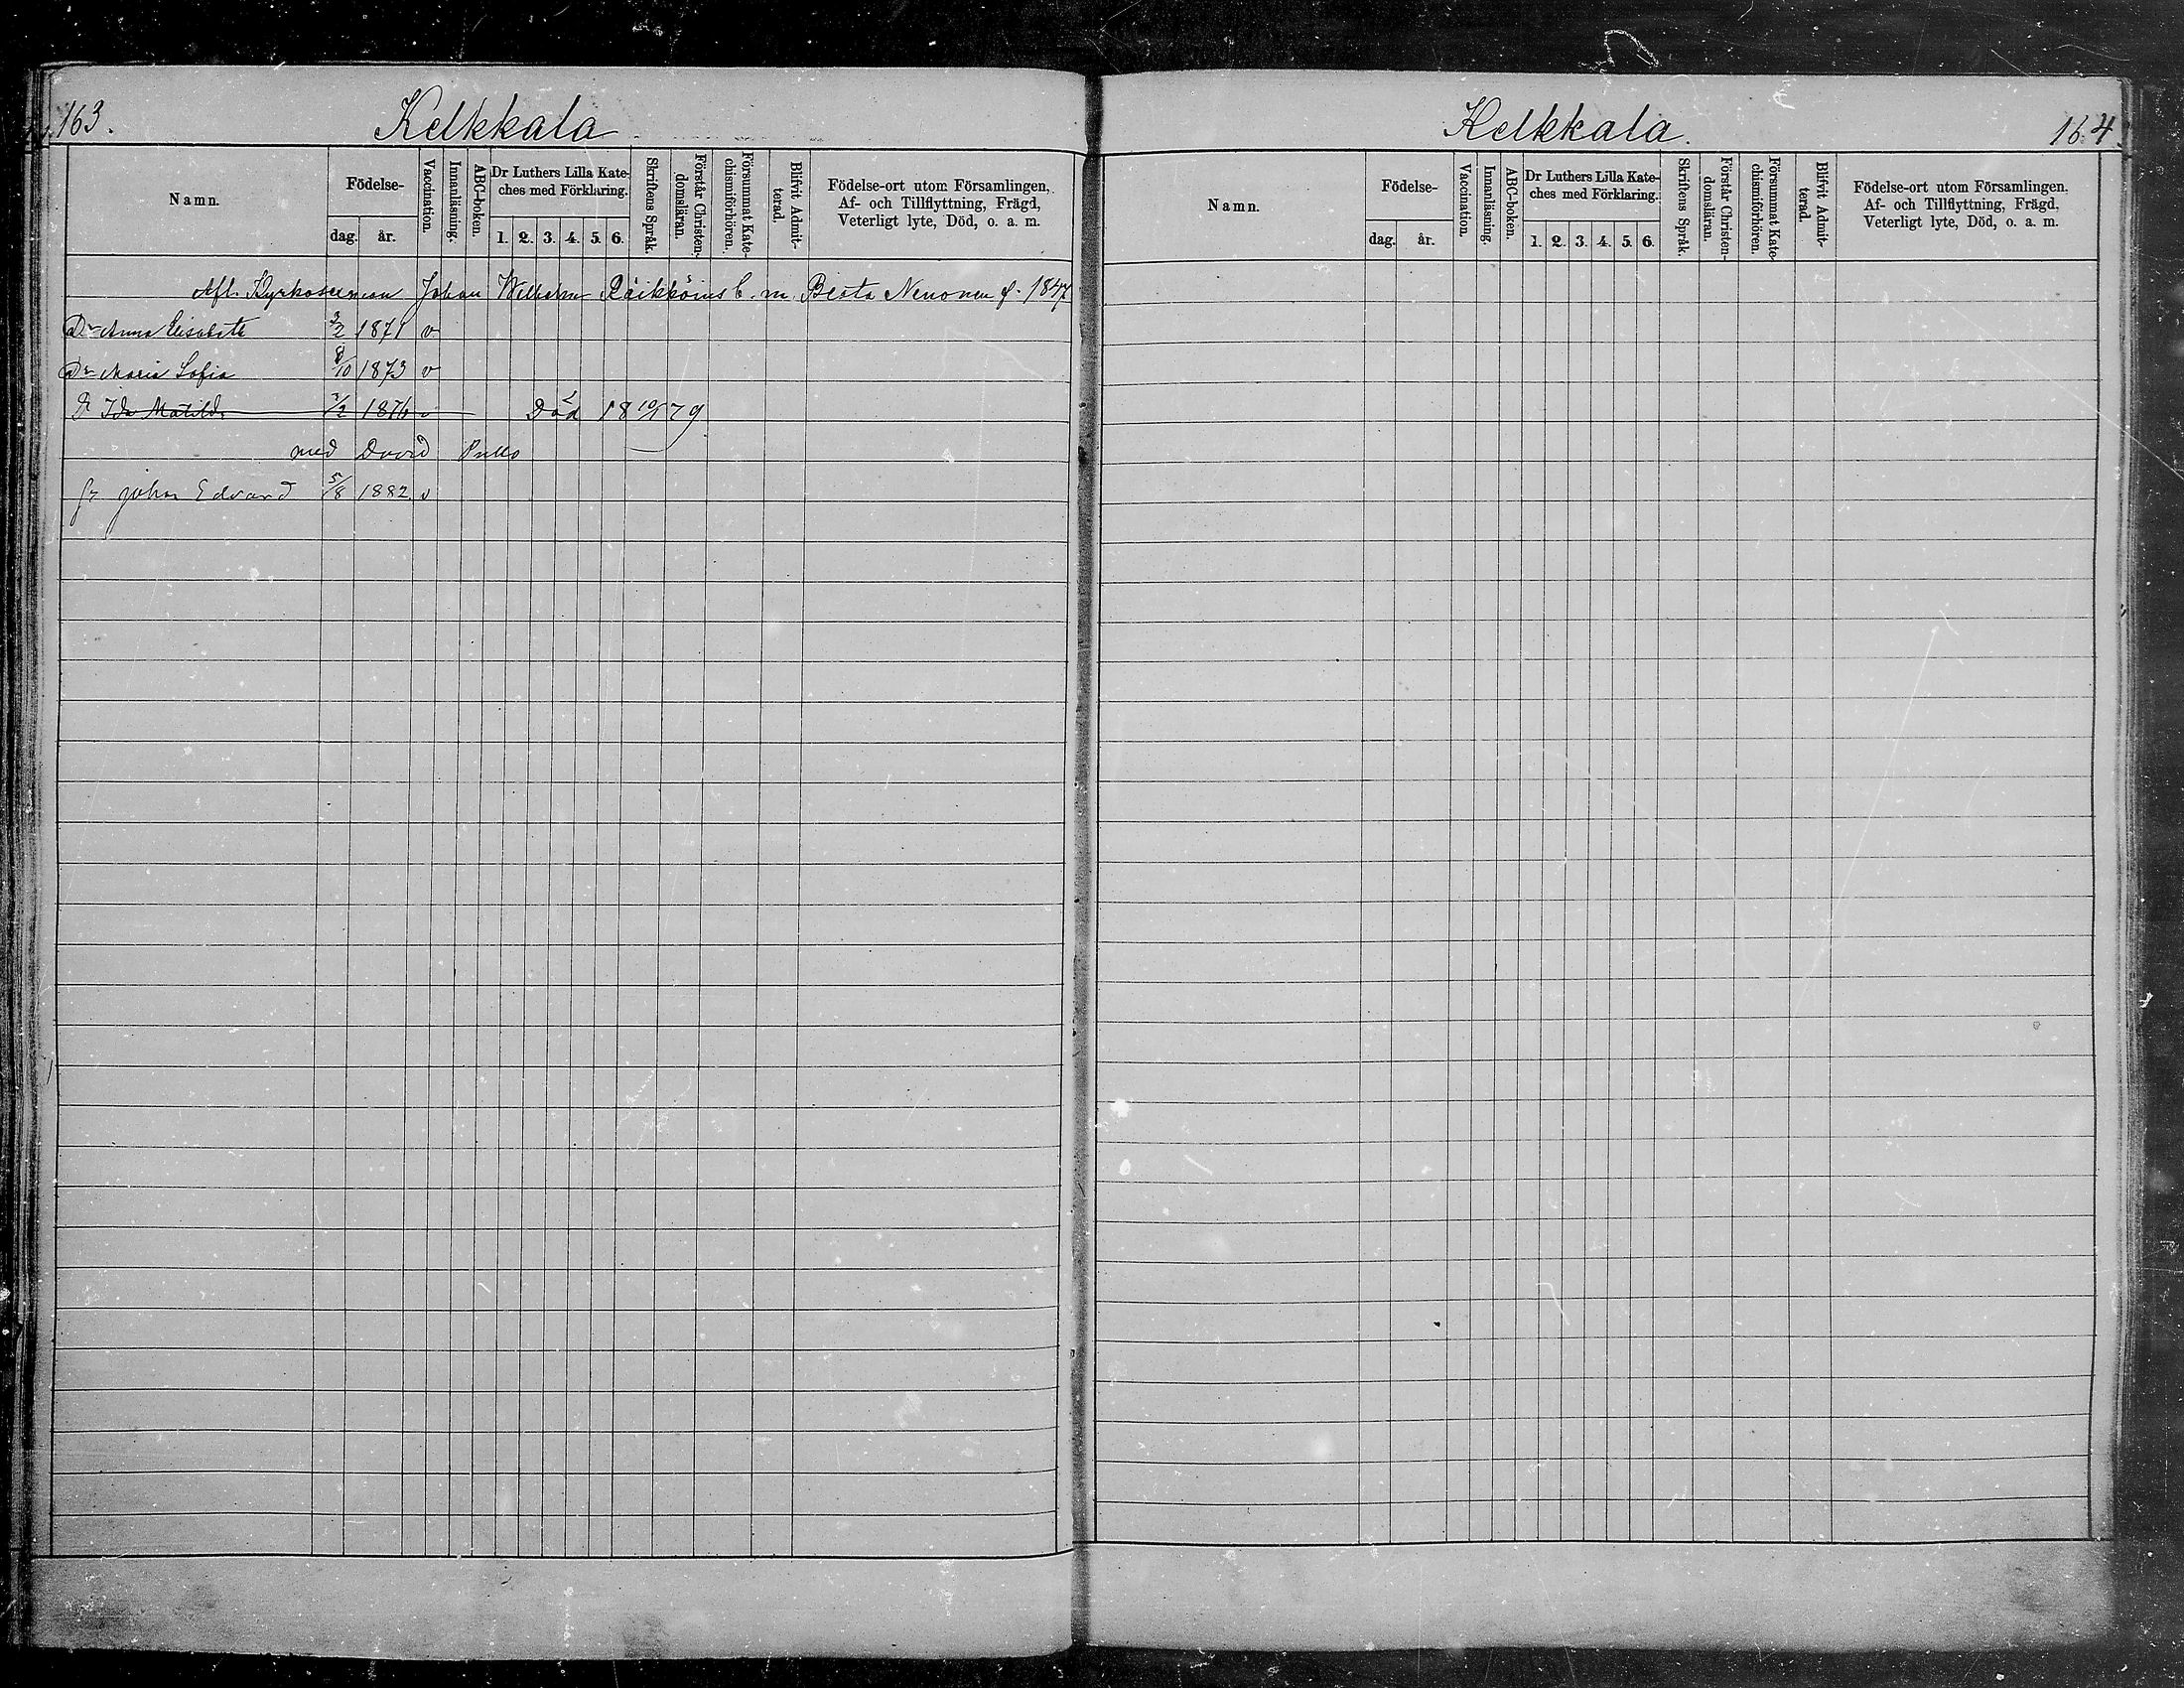 163.
Kelkkala
Namn.
Födelse-
dag. år.
Vaccination.
Innanläsning.
ABC-boken.
Dr Luthers Lilla Kate-
ches med Förklaring.
1. 2. 3. 4. 5. 6.
Skriftens Språk.
Förstår Christen-
domsläran.
Försummat Kate-
chismiförhören.
Blifvit Admit-
terad.
Födelse-ort utom Församlingen,
Af- och Tillflyttning, Frägd,
Veterligt lyte, Död, o. a. m.
Johan Wilhelm Räikköins b. m. Beata Nenonen f. 1847
Dr Anna Elisabeth 2/2 1871 v
Dr Maria Sofia 8/10 1873 v
Dr Ida Matilda 2/2 1876 v Död 18 10/1 79
med David Pullo
fr Johan Edvard 5/8 1882 v
Kelkkala.
164.
Namn.
Födelse-
dag. år.
Vaccination.
Innanläsning.
ABC-boken.
Dr Luthers Lilla Kate-
ches med Förklaring.
1. 2. 3. 4. 5. 6.
Skriftens Språk.
Förstår Christen-
domsläran.
Försummat Kate-
chismiförhören.
Blifvit Admit-
terad.
Födelse-ort utom Församlingen,
Af- och Tillflyttning, Frägd,
Veterligt lyte, Död, o. a. m.